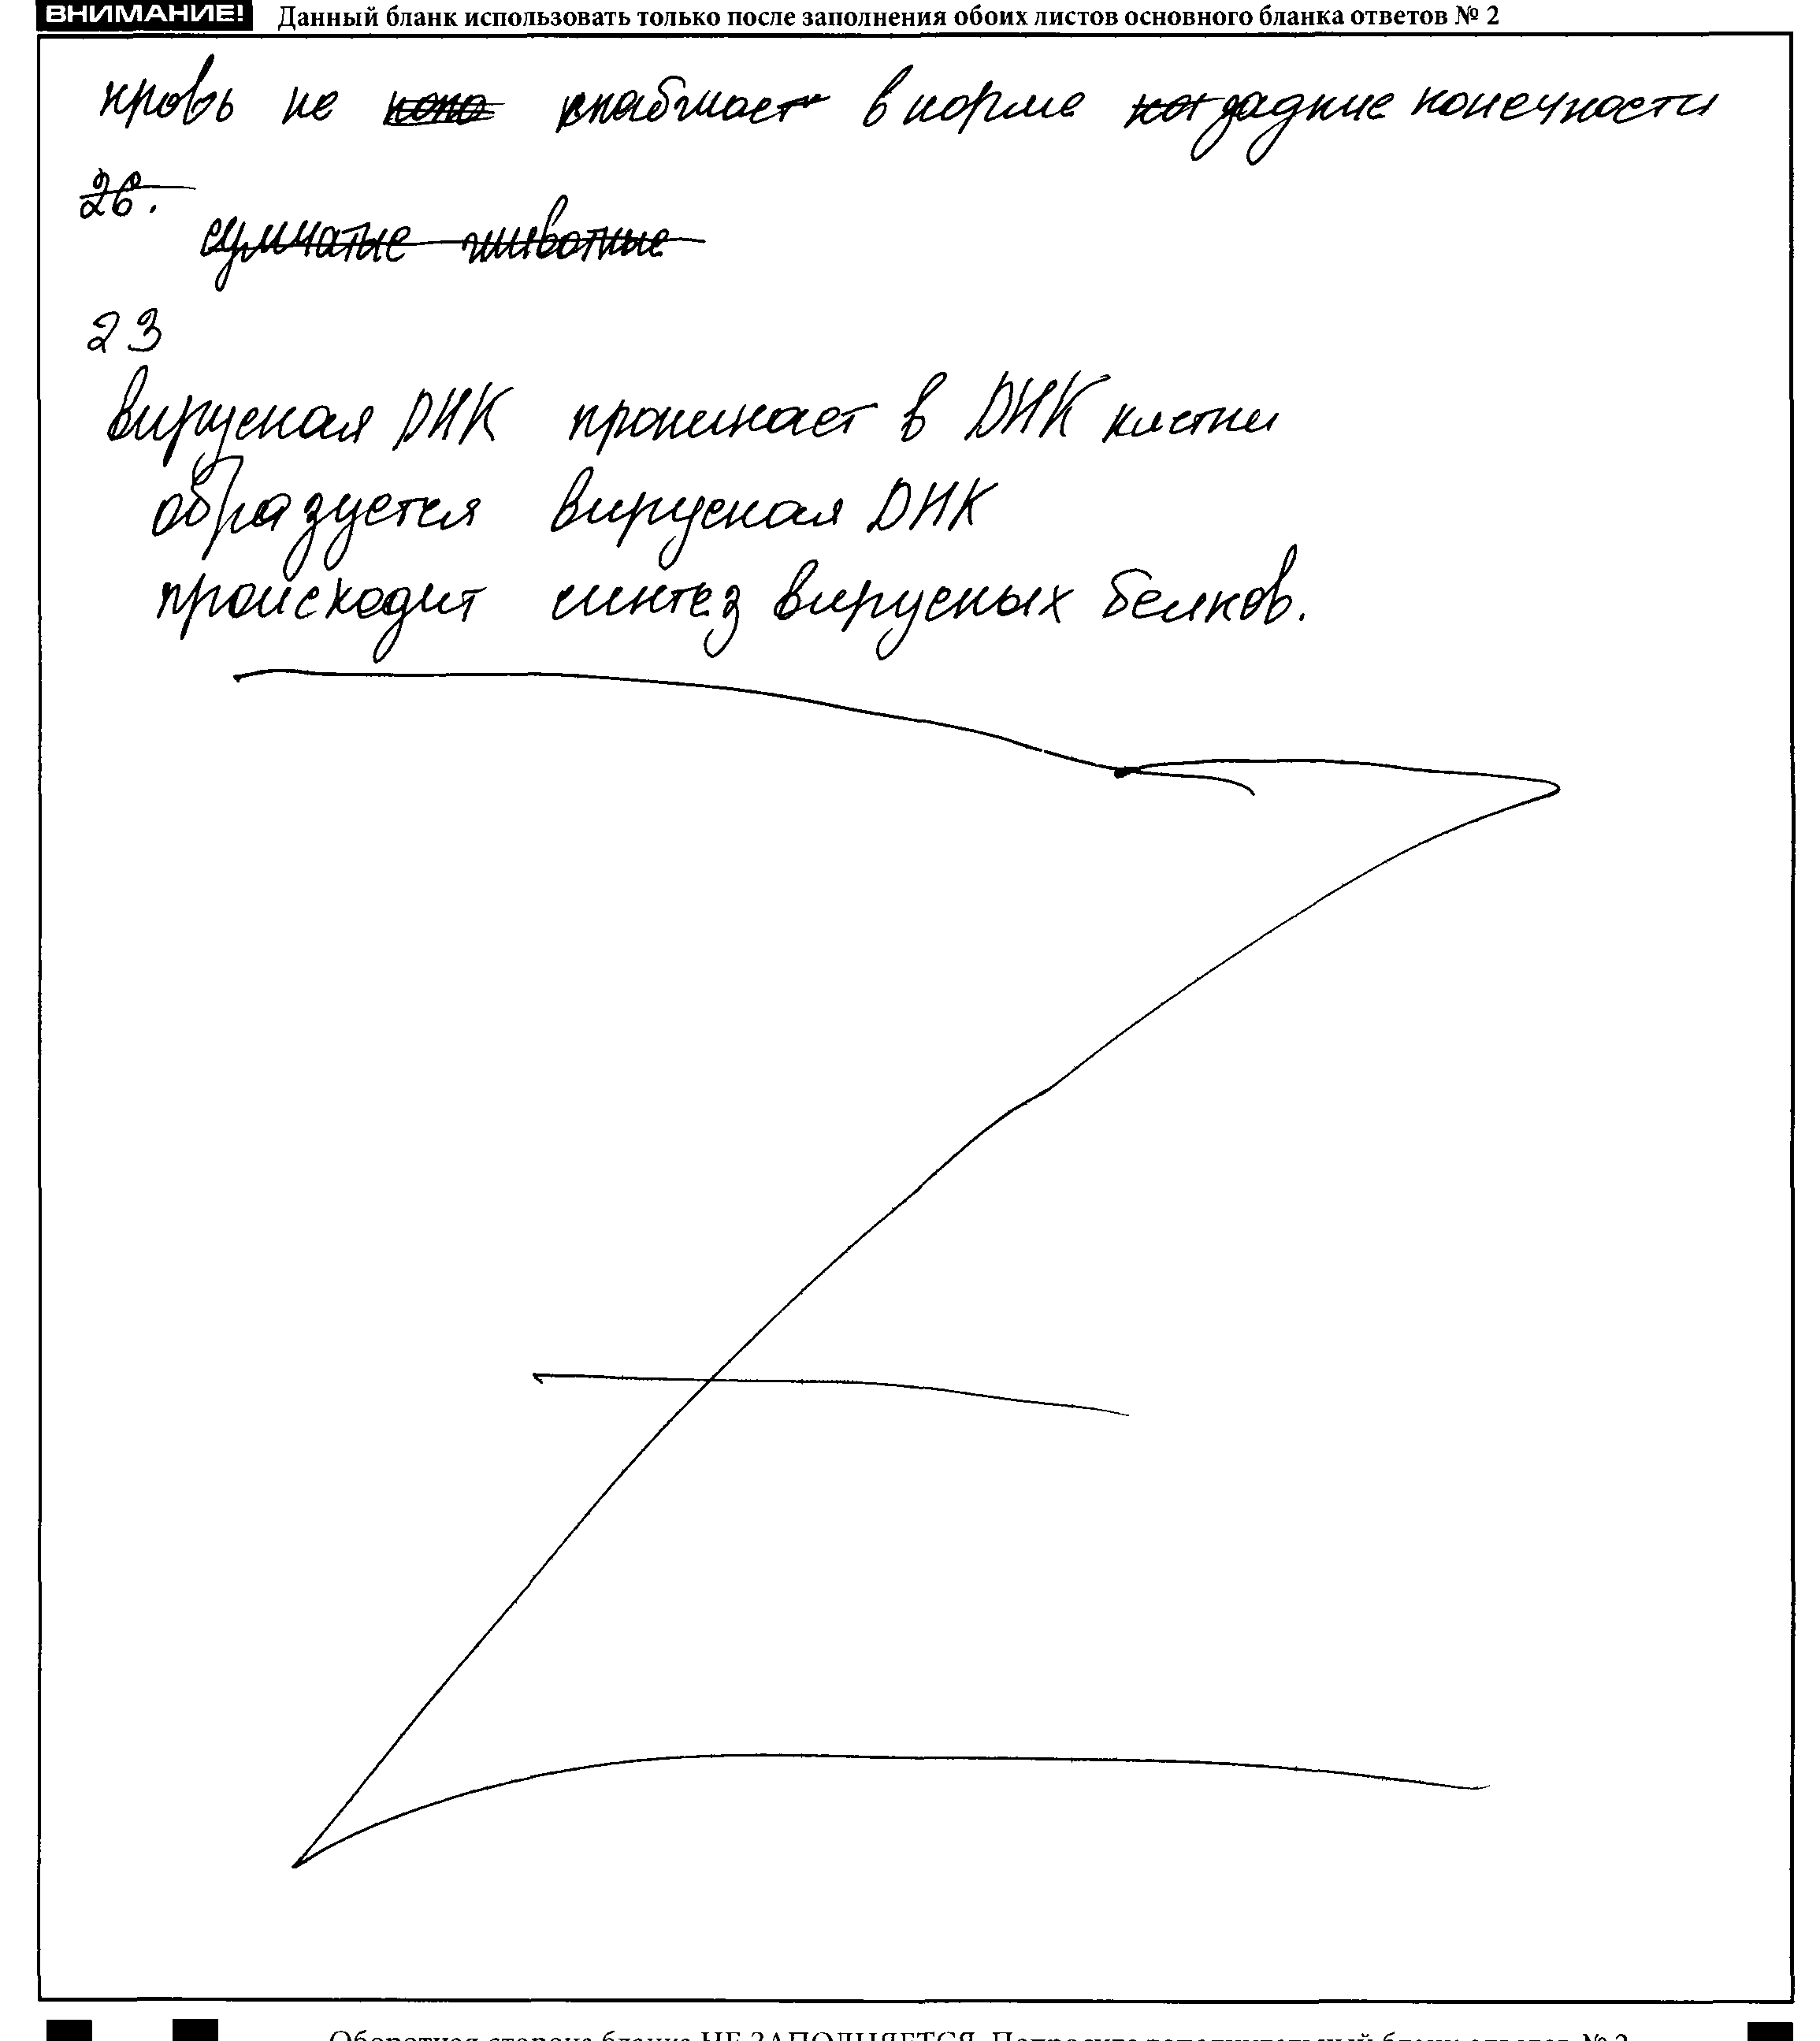 ВНИМАНИЕ! Данный бланк использовать только после заполнения обоих листов основного бланка ответов № 2
кровь не снабжает в норме задние конечности
26.
сумчатые животные
23
вирусная ДНК проникает в ДНК клетки
образуется вирусная ДНК
происходит синтез вирусных белков.
Оборотная сторона бланка НЕ ЗАПОЛНЯЕТСЯ. Попросите дополнительный бланк ответов № 2